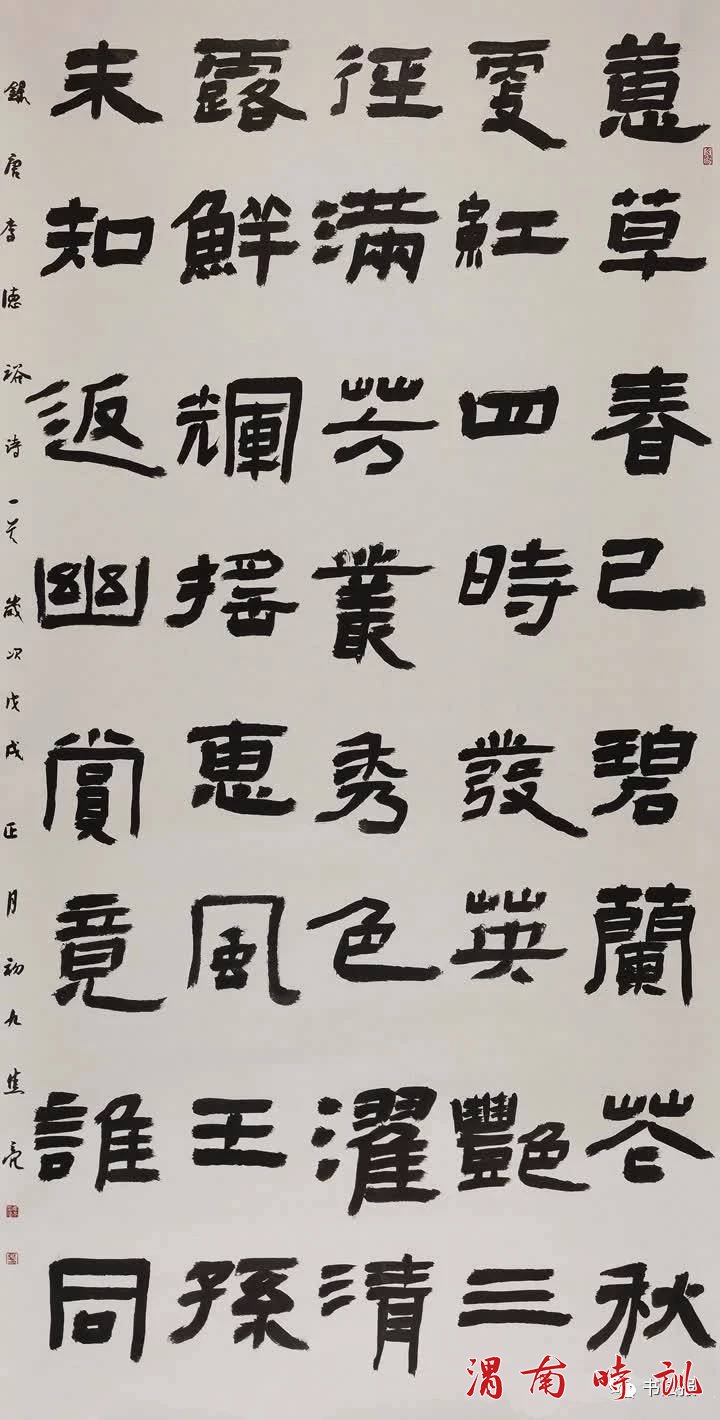 蕙草春已碧蘭花秋
更紅四時發英艷三
徑滿芳叢秀色濯清
露鮮輝搖惠風王孫
未知返幽賞竟誰同
錄唐李德裕詩一首歲次戊戌正月初九焦亮
渭南時訊
书法报